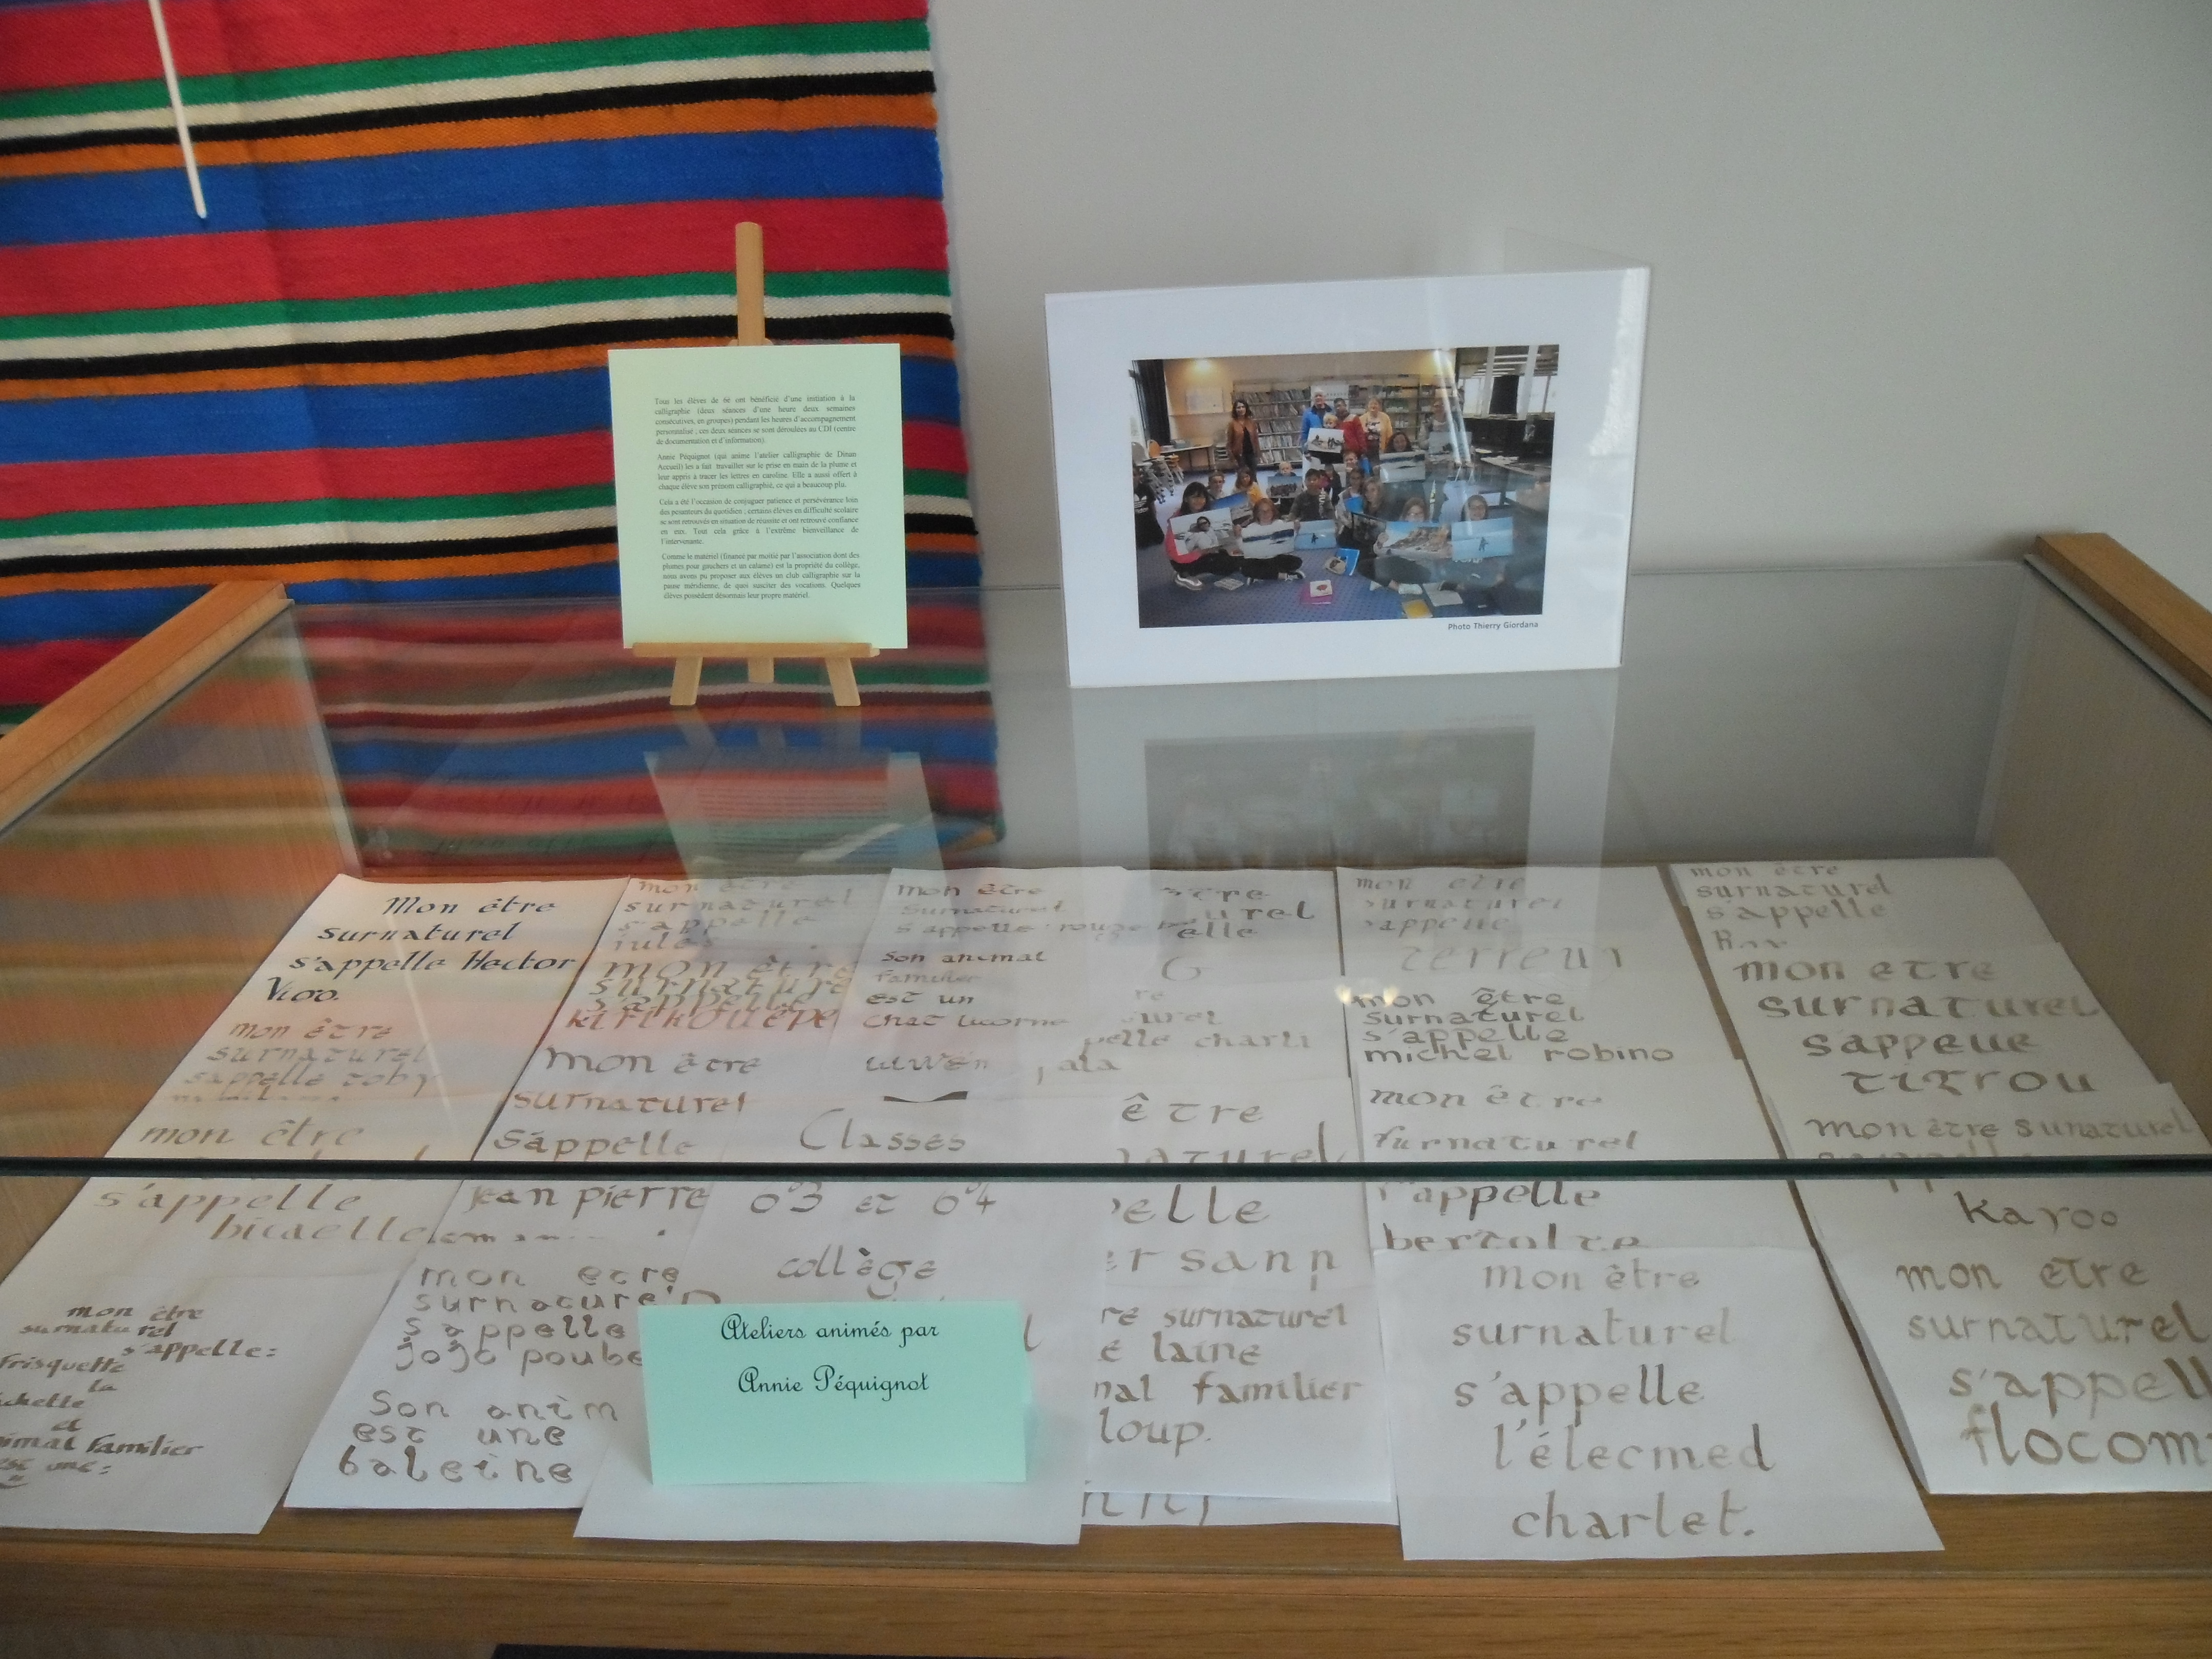 Tous les élèves de 6e ont bénéficié d'une initiation à la
calligraphie (deux séances d'une heure deux semaines
consécutives, en groupes) pendant les heures d'accompagnement
personnalisé ; ces deux séances se sont déroulées au CDI (centre
de documentation et d'information).
Annie Péquignot (qui anime l'atelier calligraphie de Dinan
Accueil) les a fait travailler sur la prise en main de la plume et
leur appris à tracer les lettres en caroline. Elle a aussi offert à
chaque élève son prénom calligraphié, ce qui a beaucoup plu.
Cela a été l'occasion de conjuguer patience et persévérance loin
des pesanteurs du quotidien ; certains élèves en difficulté scolaire
se sont retrouvés en situation de réussite et ont retrouvé confiance
en eux. Tout cela grâce à l'extrême bienveillance de
l'intervenante.
Comme le matériel (financé par moitié par l'association dont des
plumes pour gauchers et un calame) est la propriété du collège,
nous avons pu proposer aux élèves un club calligraphie sur la
pause méridienne, de quoi susciter des vocations. Quelques
élèves possèdent désormais leur propre matériel.
Photo Thierry Giordana
Mon être
surnaturel
s'appelle Hector
mon être
surnaturel
s'appelle toby
mon être
s'appelle
bicaelle
mon être
surnaturel
s'appelle:
frisquette
la
et
animal familier
mon être
surnaturel
s'appelle
jules
mon être
surnature
s'appelle
kirikouepe
mon être
surnaturel
S'appelle
jean pierre
mon etre
surnaturel
s'appelle
jojo poube
Son anim
est une
baleine
mon être
surnaturel
s'appelle rouge
son animal
familier
est un
chat licorne
Classes
6°3 et 6°4
collège
Ateliers animés par
Annie Péquignot
être
urel
elle
pelle charli
être
naturel
elle
r sann
re surnaturel
e laine
nal familier
loup.
mon etre
surnaturel
s'appelle
terreur
mon être
surnaturel
s'appelle
michel robino
mon être
surnaturel
s'appelle
mon être
surnaturel
s'appelle
l'élecmed
charlet.
mon être
surnaturel
s'appelle
mon etre
surnaturel
s'appelle
mon être sunaturel
karoo
mon etre
surnaturel
s'appell
flocom